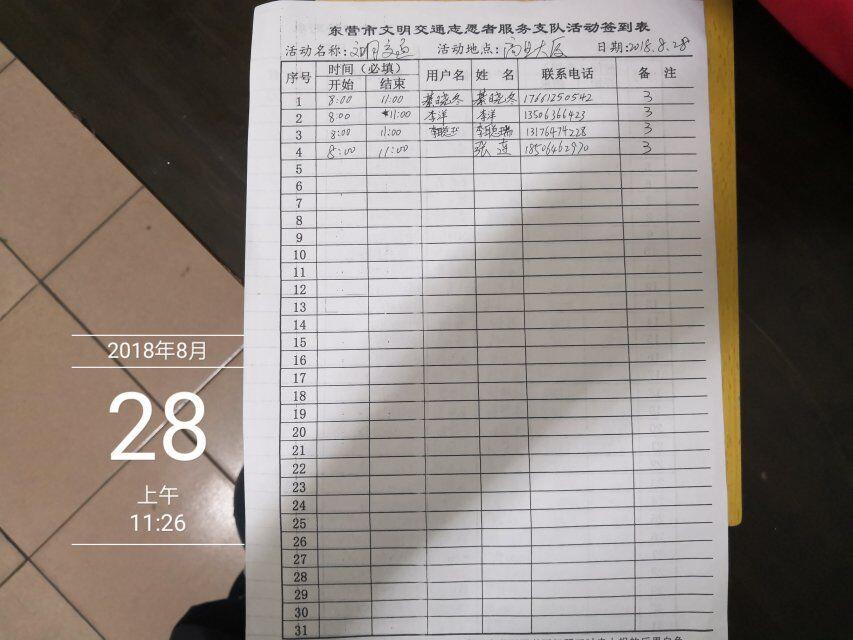 东营市文明交通志愿者服务支队活动签到表
活动名称：文明交通 活动地点：商贸大厦 日期：2018.8.28
序号 时间（必填） 用户名 姓 名 联系电话 备 注
开始 结束
1 8:00 11:00 綦晓冬 綦晓冬 17661250542 3
2 8:00 11:00 李洋 李洋 13506366423 3
3 8:00 11:00 李聪 李聪瑞 13176474228 3
4 8:00 11:00 张莲 18506462970 3
5
6
7
8
9
10
11
12
13
14
15
16
17
18
19
20
21
22
23
24
25
26
27
28
29
30
31
2018年8月
28
上午
11:26